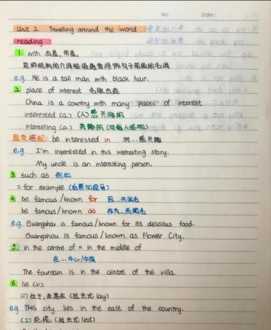 Unit 2 Travelling around the world
reading
1. with 有着, 带着
e.g. He is a tall man with black hair.
2. place of interest 名胜古迹
China is a country with many places of interest.
interested (a.) (人) 感兴趣的
interesting (a.)
be interested in 对...感兴趣
e.g. I'm interested in this interesting story.
My uncle is an interesting person.
3. such as 例如
= for example
4. be famous/known for 因...而闻名
be famous/known as 作为...而闻名
e.g. Guangzhou is famous/known for its delicious food.
Guangzhou is famous/known as Flower City.
5. in the centre of = in the middle of
在...中心/中央
The fountain is in the centre of the villa.
6. lie (v.)
(1) 位于, (过去式 lay)
e.g. This city lies in the east of the country.
(2) (过去式 lied)